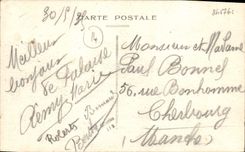 30/5/35
CARTE POSTALE
Meilleur
bonjour
de Falaise
Rémy Marie
Roberts
Monsieur et Madame
Paul Bonnel
56, rue Bonhomme
Cherbourg
(Manche)